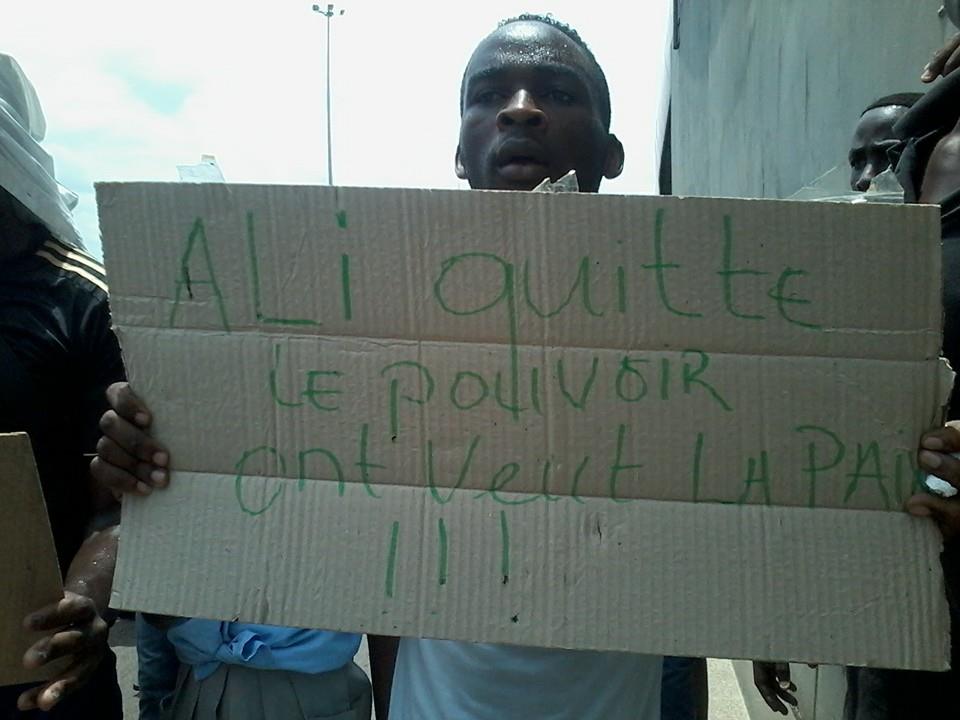 ALi quitte
LE POUVOIR
ont veut LA PAi
!!!